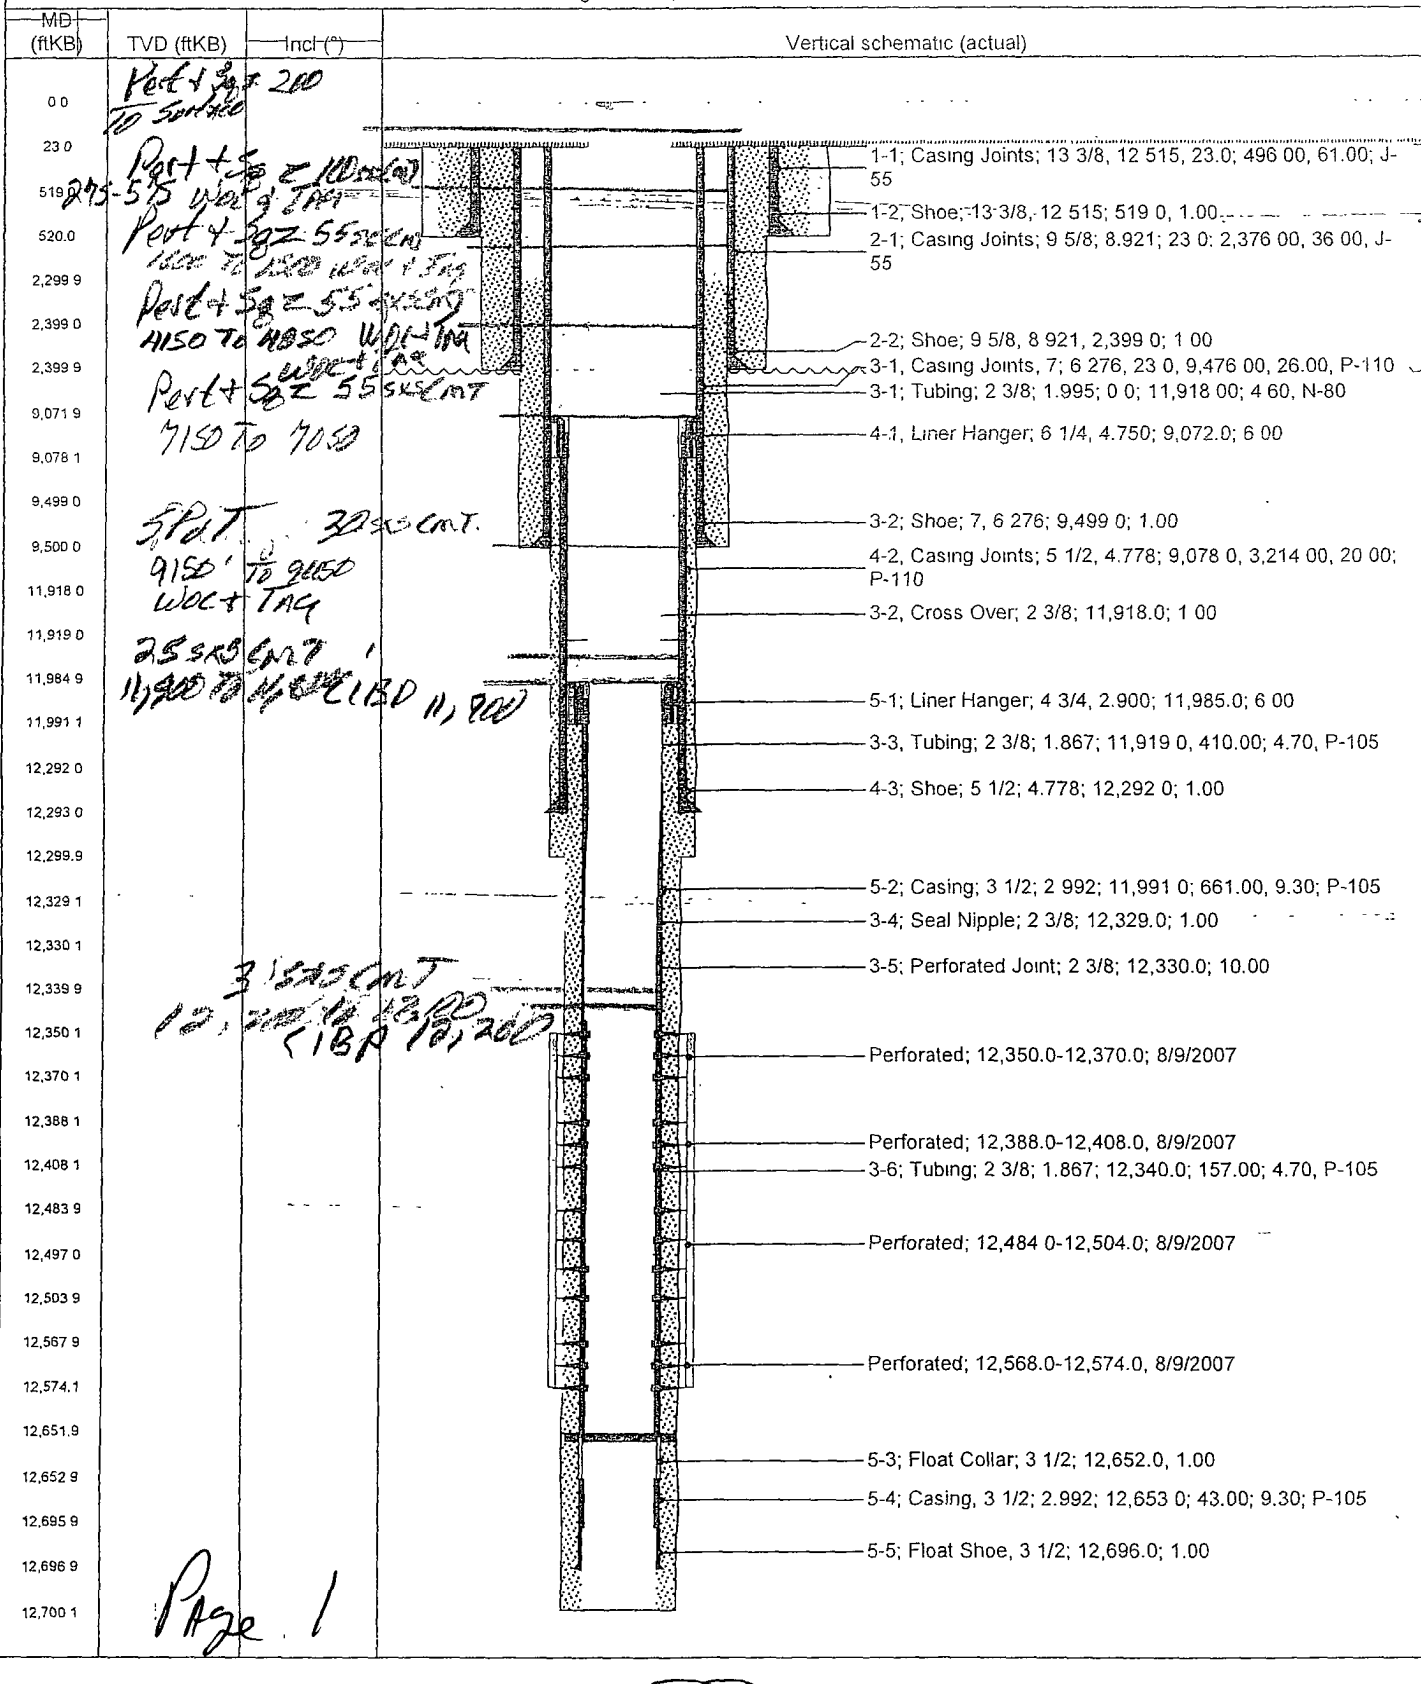 MD
(ftKB)
TVD (ftKB)
Incl (°)
Vertical schematic (actual)
0 0
23 0
519
520.0
2,299 9
2,399 0
2,399 9
9,071 9
9,078 1
9,499 0
9,500 0
11,918 0
11,919 0
11,984 9
11,991 1
12,292 0
12,293 0
12,299.9
12,329 1
12,330 1
12,339 9
12,350 1
12,370 1
12,388 1
12,408 1
12,483 9
12,497 0
12,503 9
12,567 9
12,574.1
12,651.9
12,652 9
12,695 9
12,696 9
12,700 1
Perf + Sqz 200
To Surface
Perf + Sqz 100 sxs
275-575 WOC & TAG
Perf + Sqz 55 sxs Cmt
WOC + Tag
Perf + Sqz 55 sxs Cmt
4150 To 4050 WOC + TAG
WOC + TAG
Perf + Sqz 55 sxs CMT
7150 To 7050
SPOT 30 sxs CMT.
9150' To
WOC + TAG
25 sxs CMT
11,900 To CIBP 11,900
sxs CMT
CIBP 12,200
Page 1
1-1; Casing Joints; 13 3/8, 12 515, 23.0; 496 00, 61.00; J-
55
1-2, Shoe; 13 3/8, 12 515; 519 0, 1.00
2-1; Casing Joints; 9 5/8; 8.921; 23 0; 2,376 00, 36 00, J-
55
2-2; Shoe; 9 5/8, 8 921, 2,399 0; 1 00
3-1, Casing Joints, 7; 6 276, 23 0, 9,476 00, 26.00, P-110
3-1; Tubing; 2 3/8; 1.995; 0 0; 11,918 00; 4 60, N-80
4-1, Liner Hanger; 6 1/4, 4.750; 9,072.0; 6 00
3-2; Shoe; 7, 6 276; 9,499 0; 1.00
4-2, Casing Joints; 5 1/2, 4.778; 9,078 0, 3,214 00, 20 00;
P-110
3-2, Cross Over; 2 3/8; 11,918.0; 1 00
5-1; Liner Hanger; 4 3/4, 2.900; 11,985.0; 6 00
3-3, Tubing; 2 3/8; 1.867; 11,919 0, 410.00; 4.70, P-105
4-3; Shoe; 5 1/2; 4.778; 12,292 0; 1.00
5-2; Casing; 3 1/2; 2 992; 11,991 0; 661.00, 9.30; P-105
3-4; Seal Nipple; 2 3/8; 12,329.0; 1.00
3-5; Perforated Joint; 2 3/8; 12,330.0; 10.00
Perforated; 12,350.0-12,370.0; 8/9/2007
Perforated; 12,388.0-12,408.0, 8/9/2007
3-6; Tubing; 2 3/8; 1.867; 12,340.0; 157.00; 4.70, P-105
Perforated; 12,484 0-12,504.0; 8/9/2007
Perforated; 12,568.0-12,574.0, 8/9/2007
5-3; Float Collar; 3 1/2; 12,652.0, 1.00
5-4; Casing, 3 1/2; 2.992; 12,653 0; 43.00; 9.30; P-105
5-5; Float Shoe, 3 1/2; 12,696.0; 1.00